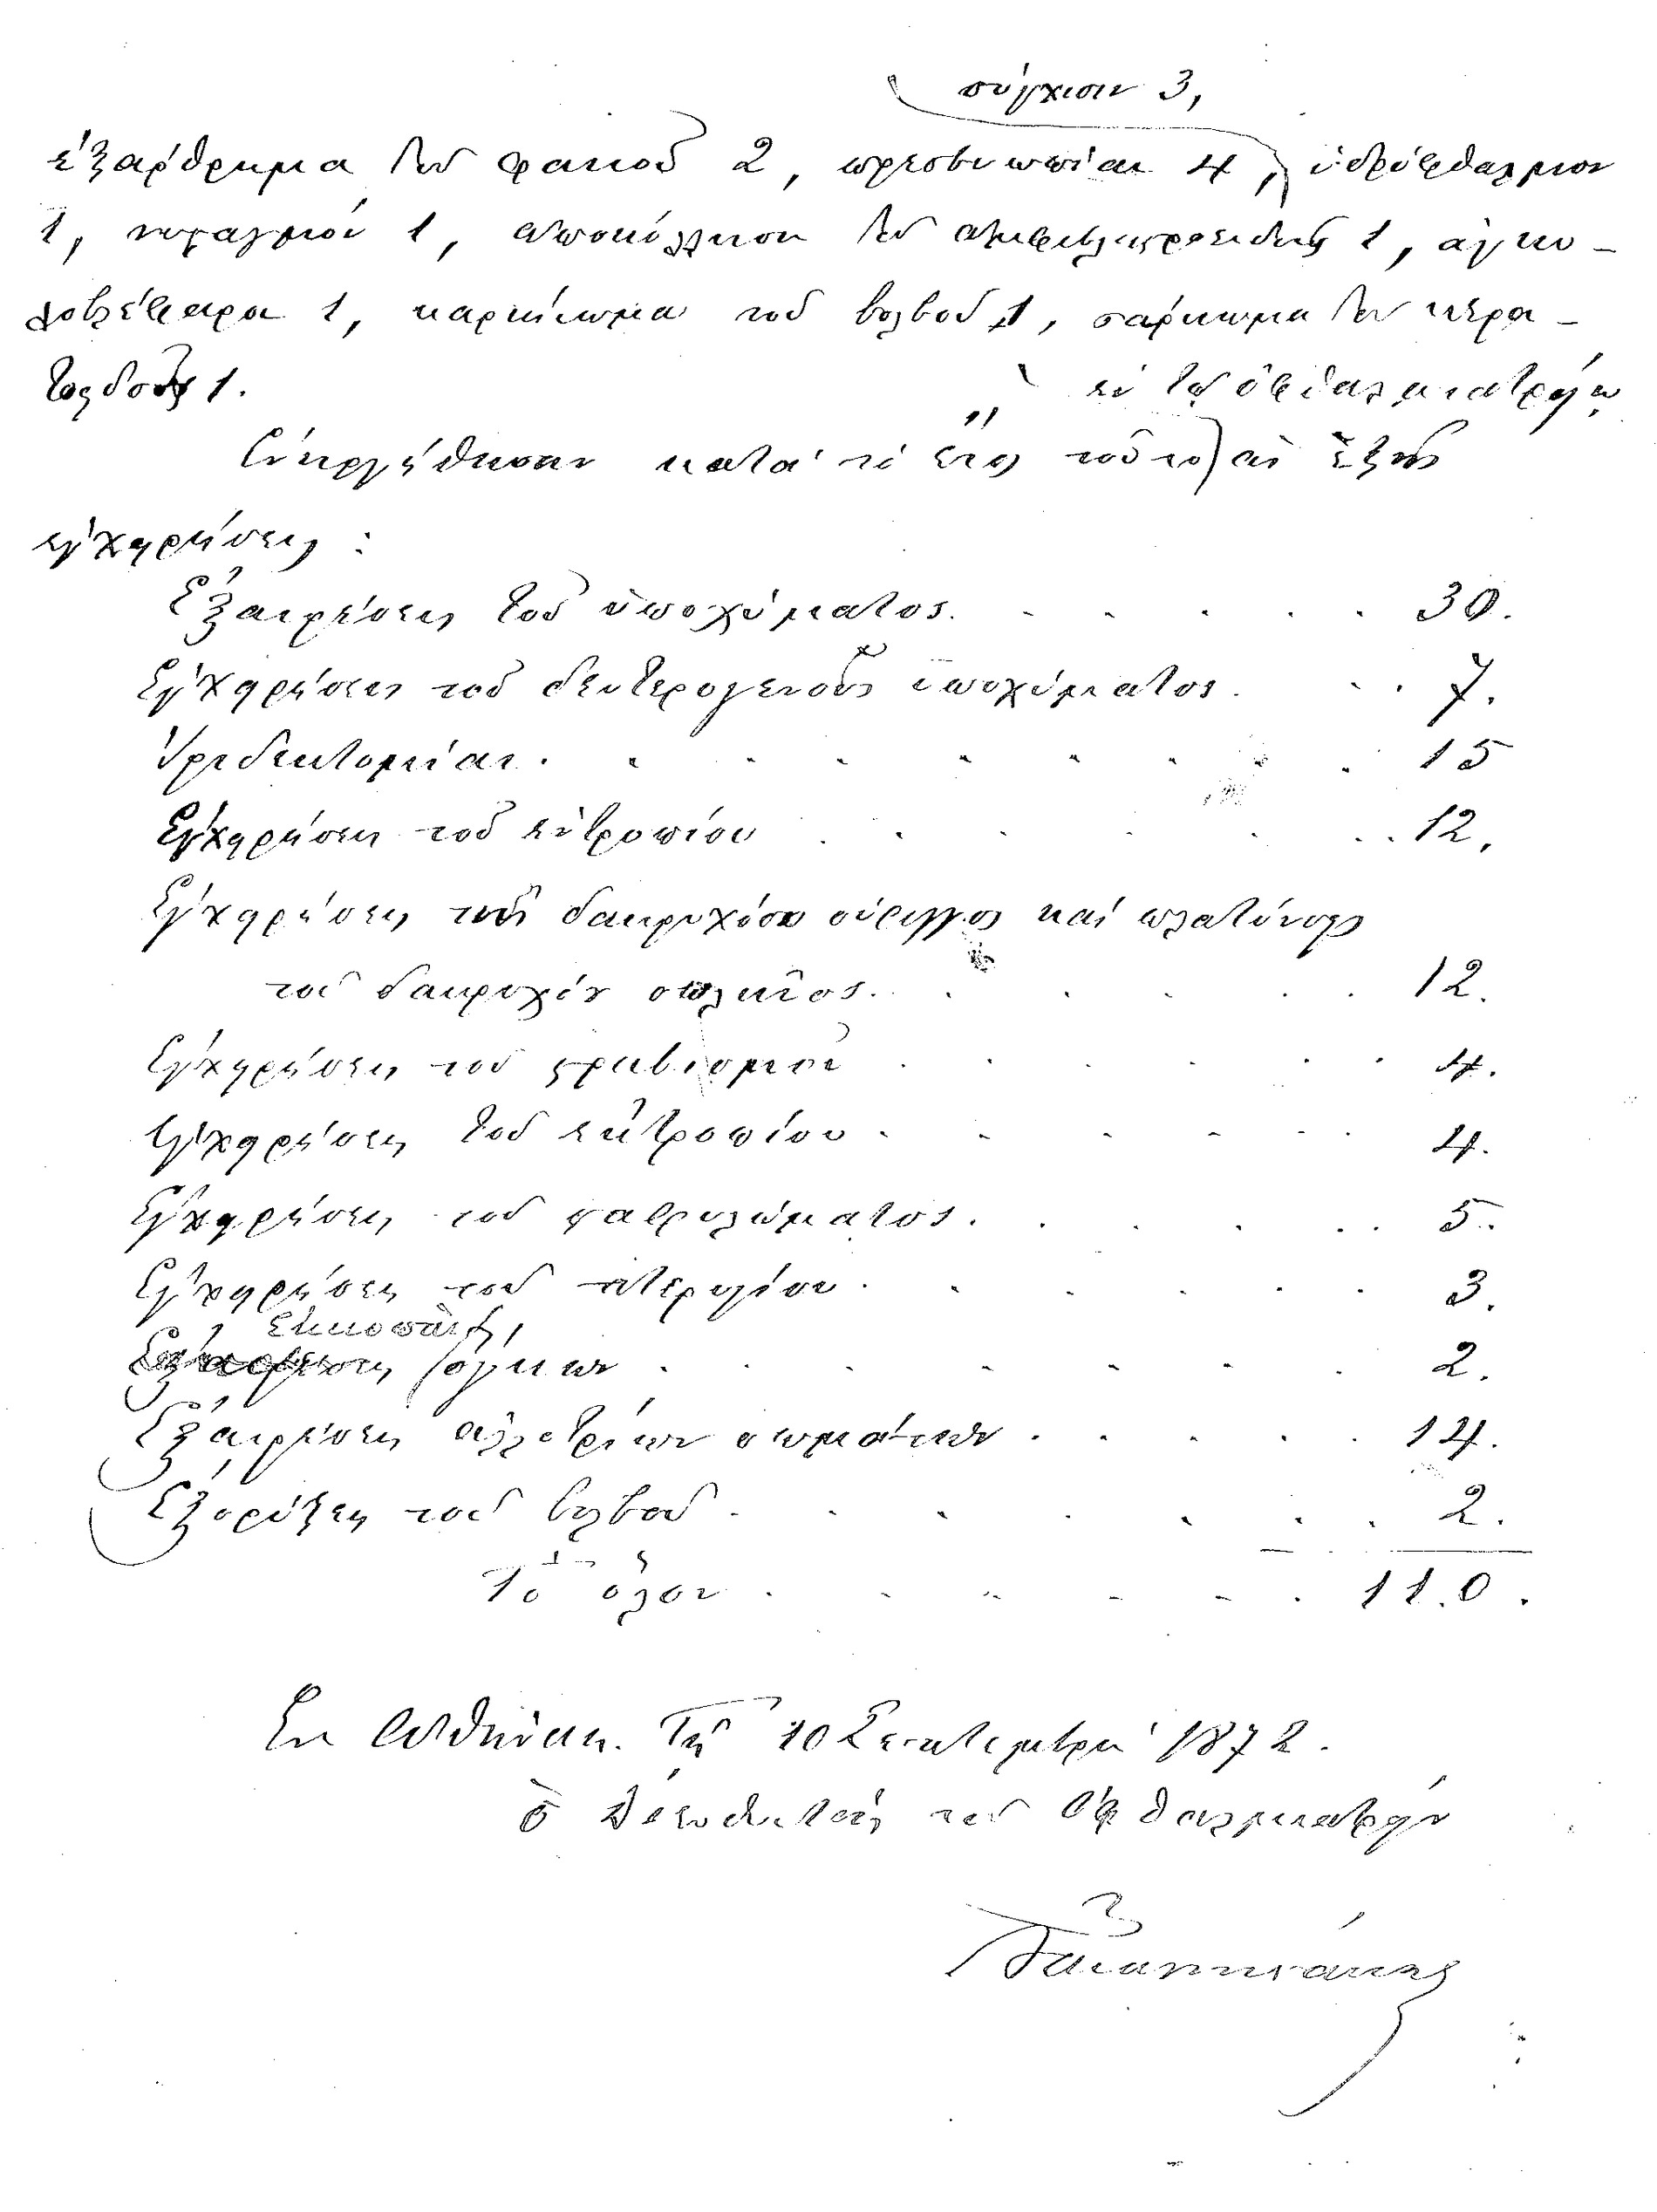 σύγχισιν 3,
ἐξάρθρημα τοῦ φακοῦ 2, πρεσβυωπίαι 4, ὑδρόφθαλμον
1, νυσταγμοί 1, ἀποκόλλησιν τοῦ ἀμφιβληστροειδοῦς 1, ἀγκυ-
λοβλέφαρα 1, καρκίνωμα τοῦ βολβοῦ 1, σάρκωμα τοῦ κερα-
τοειδοῦς 1.
ἐν τῷ ὀφθαλμιατρείῳ
Ἐνηργήθησαν κατὰ τὸ ἔτος τοῦτο αἱ ἑξῆς
ἐγχειρήσεις :
Ἐξαιρέσεις τοῦ ὑποχύματος . . . . . 30.
Ἐγχειρήσεις τοῦ δευτερογενοῦς ὑποχύματος . . . 7.
Ἰριδεκτομίαι . . . . . . . . . 15
Ἐγχειρήσεις τοῦ ἐντροπίου . . . . . . 12.
Ἐγχειρήσεις τοῦ δακρυχόου σύριγγος καὶ πλατύνσεις
τοῦ δακρυχόου σωλῆνος . . . . . 12.
Ἐγχειρήσεις τοῦ στραβισμοῦ . . . . . 4.
Ἐγχειρήσεις τοῦ ἐκτροπίου . . . . . . 4.
Ἐγχειρήσεις τοῦ σταφυλώματος . . . . . 5.
Ἐγχειρήσεις τοῦ πτερυγίου . . . . . . 3.
Ἐκκοπαὶ
ὄγκων . . . . . . 2.
Ἐξαιρέσεις ἀλλοτρίων σωμάτων . . . . . 14.
Ἐξορύξεις τοῦ βολβοῦ . . . . . . . 2.
Τὸ ὅλον . . . . . . 110.
Ἐν Ἀθήναις τῇ 10 Σεπτεμβρίου 1872.
ὁ Διευθυντὴς τοῦ Ὀφθαλμιατρείου